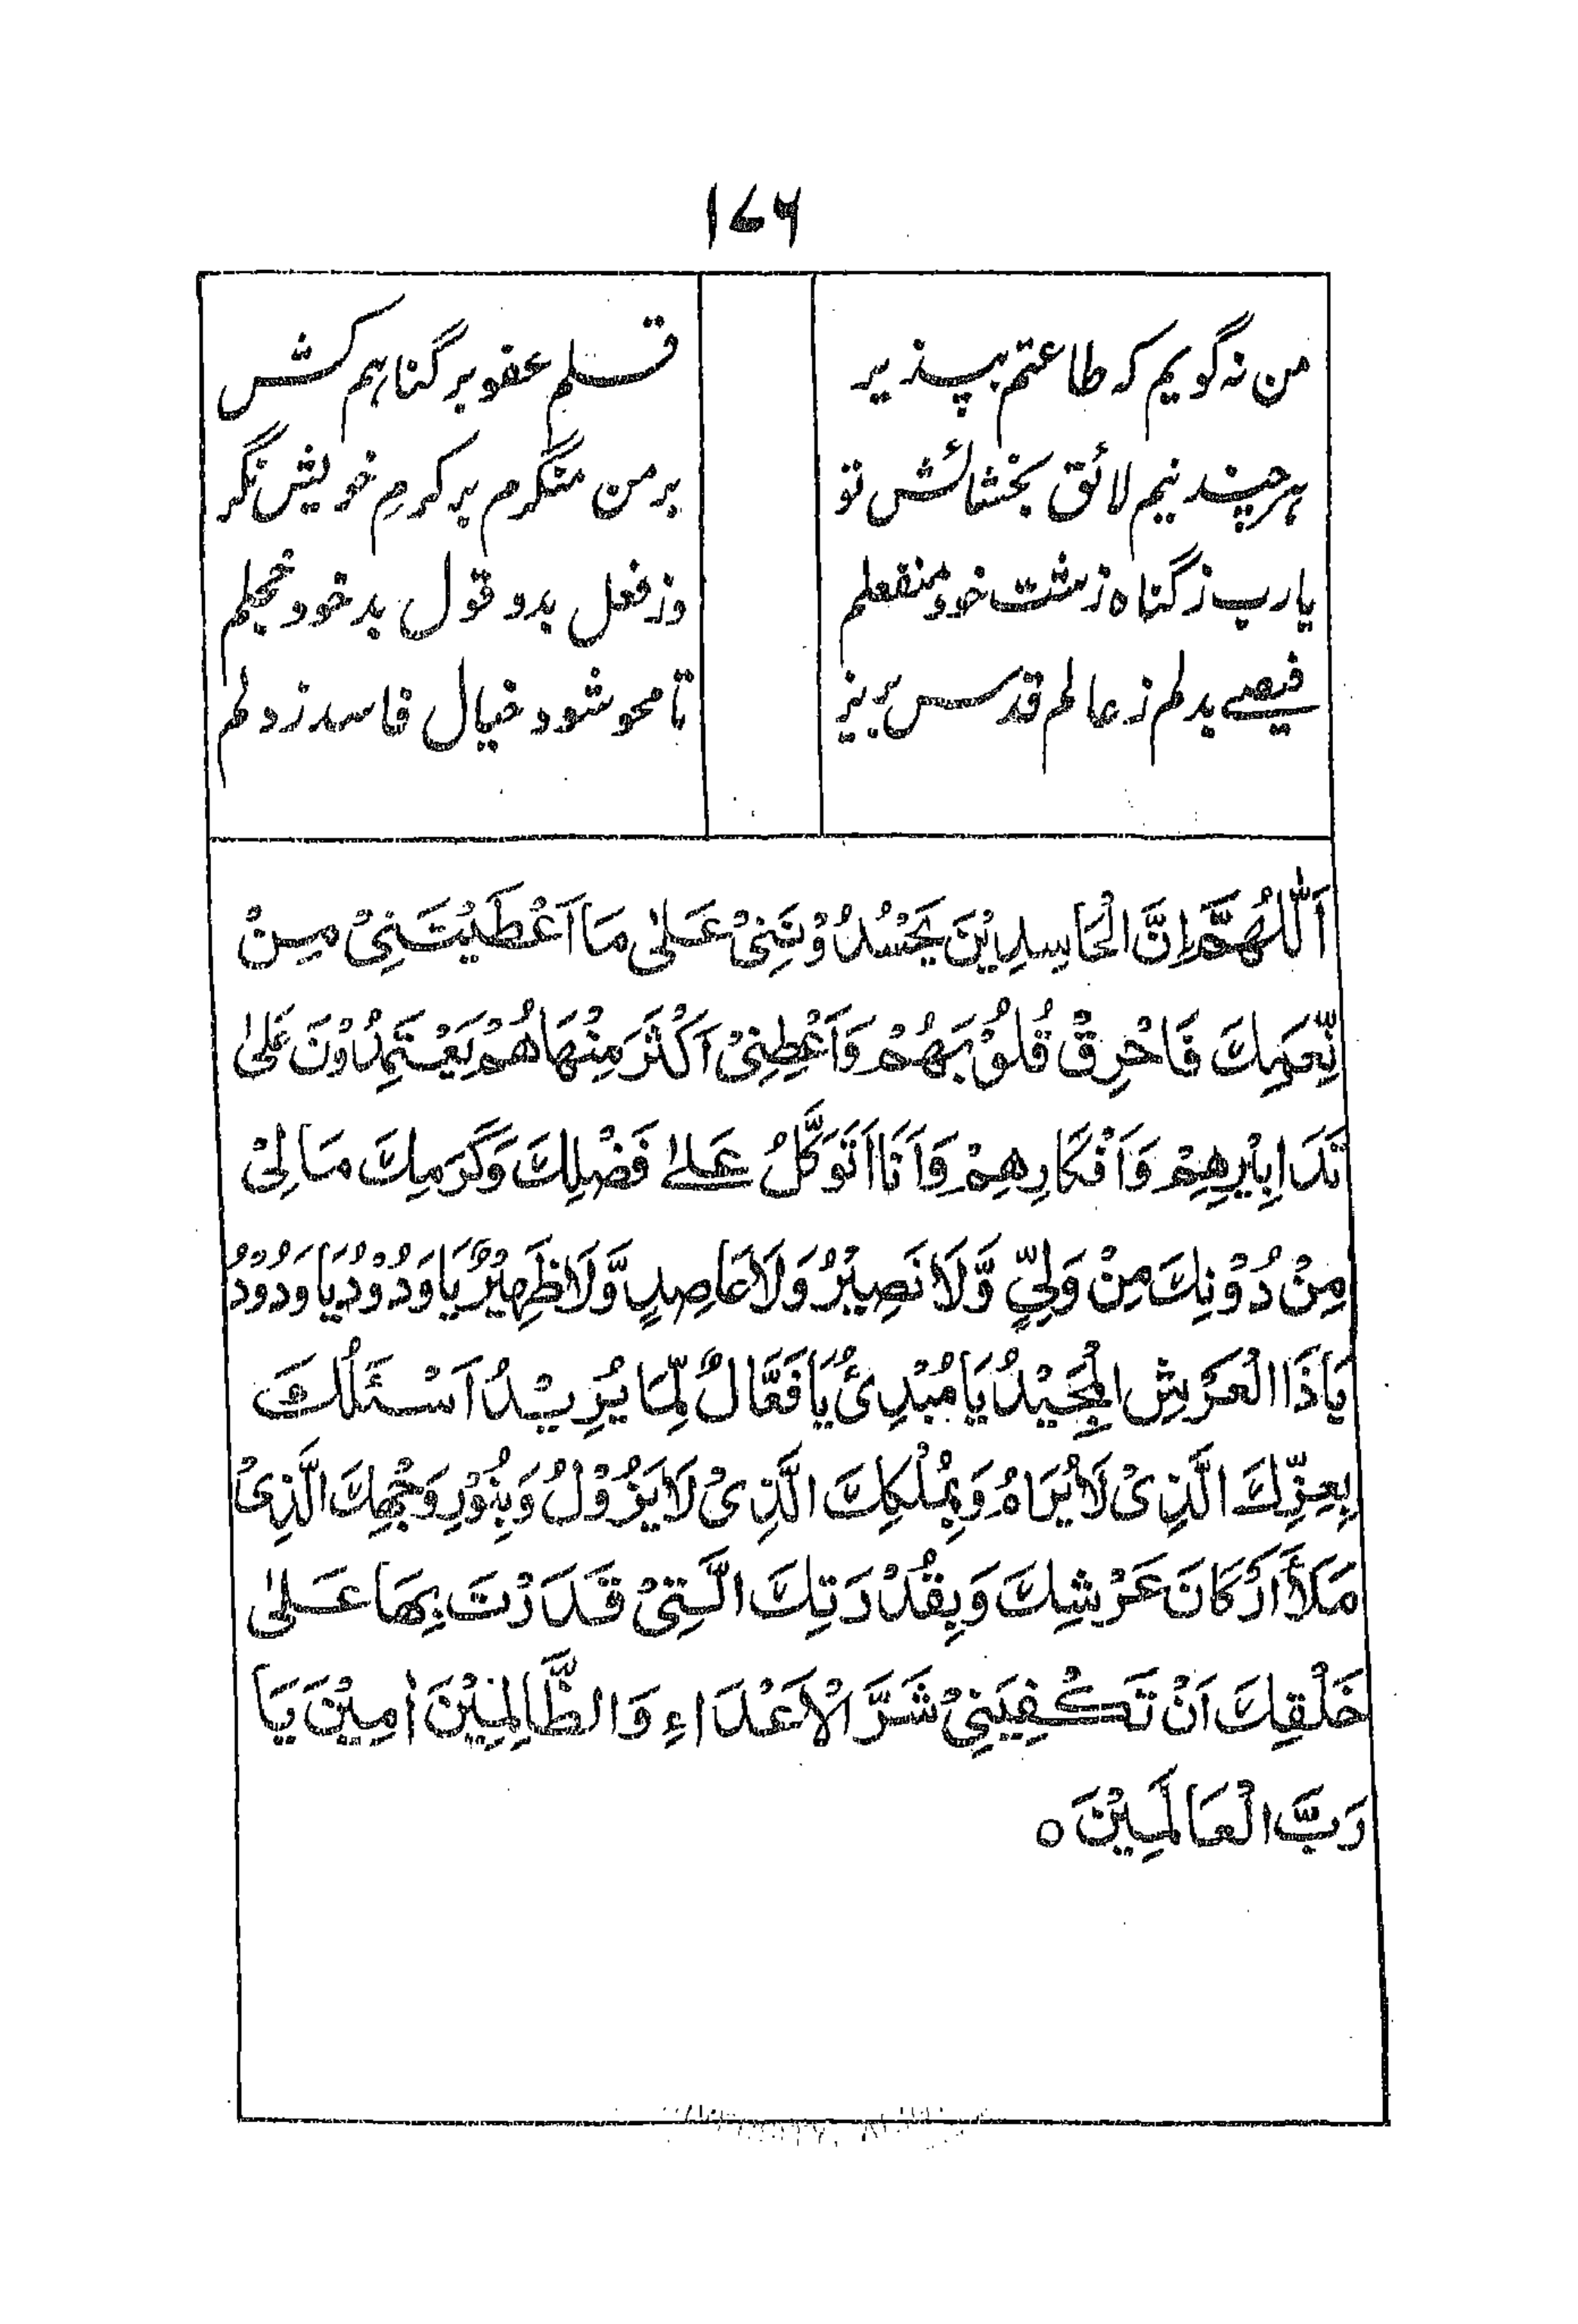 ۱۷۶
من نہ گویم کہ طاعتم بپذیر قلم عفو بر گناہم کش
ہرچند نیم لائق بخشائش تو بر من منگرم بر کرمِ خویش نگر
یا رب ز گناہ زشت خود منفعلم وز فعل بد و قول بد خود خجلم
فیضے بدلم ز عالم قدس بریز تا محو شود خیال فاسد ز دلم
اَللّٰهُمَّ اِنَّ الْحَاسِدِيْنَ يَحْسُدُوْنَنِىْ عَلٰى مَا اَعْطَيْتَنِىْ مِنْ
نِّعَمِكَ فَاحْرِقْ قُلُوْبَهُمْ وَاَعْطِنِىْ اَكْثَرَ مِنْهَا هُمْ يَعْتَمِدُوْنَ عَلىٰ
تَدَابِيْرِهِمْ وَاَفْكَارِهِمْ وَاَنَا اَتَوَكَّلُ عَلٰے فَضْلِكَ وَكَرَمِكَ مَالِىْ
مِنْ دُوْنِكَ مِنْ وَلِيٍّ وَّلَا نَصِيْرُ وَلَا عَاصِدٍ وَّلَا ظَهِيْرٌ يَا وَدُوْدُ يَا وَدُوْدُ
يَا ذَا الْعَرْشِ الْمَجِيْدُ يَا مُبْدِئُ يَا فَعَّالٌ لِّمَا يُرِيْدُ اَسْئَلُكَ
بِعِزِّكَ الَّذِىْ لَا يُرَامُ وَبِمُلْكِكَ الَّذِىْ لَا يَزُوْلُ وَبِنُوْرِ وَجْهِكَ الَّذِىْ
مَلَأَ اَرْكَانَ عَرْشِكَ وَبِقُدْرَتِكَ الَّتِىْ قَدَرْتَ بِهَا عَلىٰ
خَلْقِكَ اَنْ تَكْفِيَنِىْ شَرَّ الْاَعْدَاءِ وَالظَّالِمِيْنَ اٰمِيْنَ يَا
رَبَّ الْعَالَمِيْنَ ه